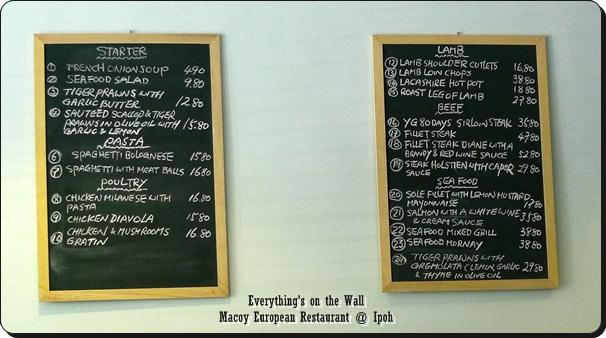 STARTER
1 FRENCH ONION SOUP 4.90
2 SEAFOOD SALAD 9.80
3 TIGER PRAWNS WITH
GARLIC BUTTER 12.80
4 SAUTEED SCALLOP & TIGER
PRAWNS IN OLIVE OIL WITH 15.80
GARLIC & LEMON
PASTA
6 SPAGHETTI BOLOGNESE 15.80
7 SPAGHETTI WITH MEAT BALLS 16.80
POULTRY
8 CHICKEN MILANESE WITH 16.80
PASTA
9 CHICKEN DIAVOLA 15.80
10 CHICKEN & MUSHROOMS 16.80
GRATIN
LAMB
12 LAMB SHOULDER CUTLETS 16.80
13 LAMB LOIN CHOPS 38.80
14 LACASHIRE HOT POT 18.80
15 ROAST LEG OF LAMB 27.80
BEEF
16 YG 80DAYS SIRLOIN STEAK 35.80
17 FILLET STEAK 47.80
18 FILLET STEAK DIANE WITH A
BRANDY & RED WINE SAUCE 52.80
19 STEAK HOLSTIEN WITH CAPER 29.80
SAUCE
SEA FOOD
20 SOLE FILLET WITH LEMON MUSTARD
MAYONNAISE
21 SALMON WITH A WHITE WINE
& CREAM SAUCE
22 SEAFOOD MIXED GRILL 39.80
23 SEAFOOD MORNAY 38.80
24 TIGER PRAWNS WITH
GREMOLATA (LEMON, GARLIC 29.80
& THYME IN OLIVE OIL
Everything's on the Wall
Macoy European Restaurant @ Ipoh